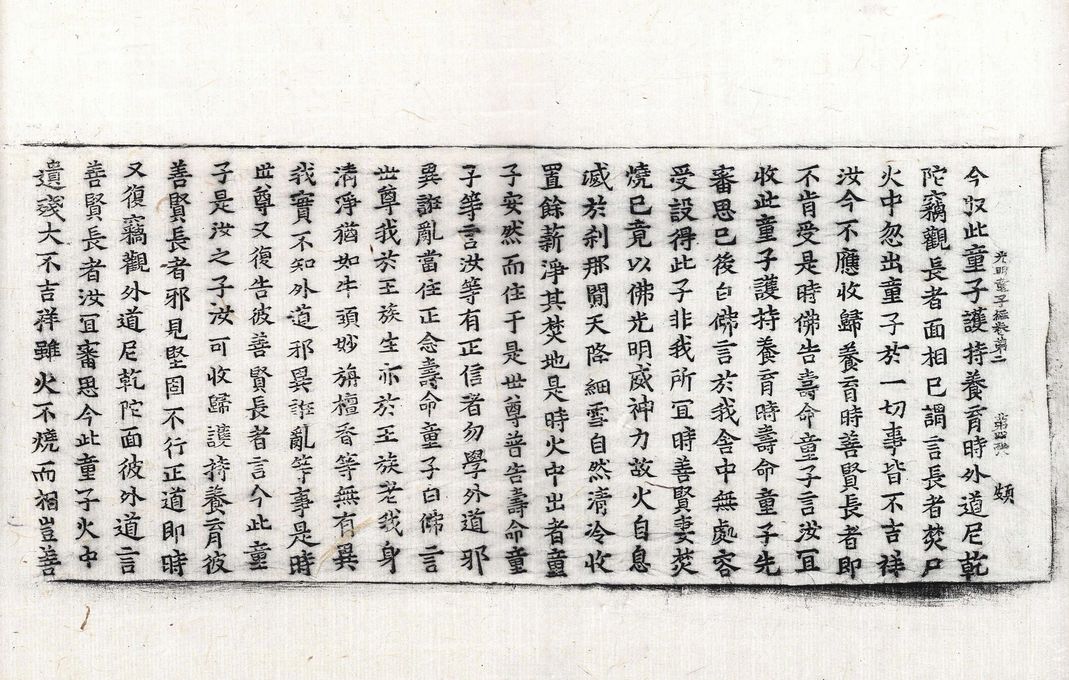 光明童子經卷第二 頗
今収此童子護持養育時外道尼乾
陀竊觀長者面相已謂言長者焚尸
火中忽出童子於一切事皆不吉祥
汝今不應收歸養育時善賢長者即
不肯受是時佛告壽命童子言汝冝
收此童子護持養育時壽命童子先
審思已後白佛言於我舍中無處容
受設得此子非我所冝時善賢妻焚
燒已竟以佛光明威神力故火自息
滅於剎那間天降細雪自然清冷收
置餘薪淨其焚地是時火中出者童
子安然而住于是世尊普告壽命童
子等言汝等有正信者勿學外道邪
異誑亂當住正念壽命童子白佛言
世尊我於王族生亦於王族老我身
清淨猶如牛頭妙旃檀香等無有異
我實不知外道邪異誑亂等事是時
世尊又復告彼善賢長者言今此童
子是汝之子汝可收歸護持養育彼
善賢長者邪見堅固不行正道即時
又復竊觀外道尼乾陀面彼外道言
善賢長者汝冝審思今此童子火中
遺殘大不吉祥雖火不燒而相豈善